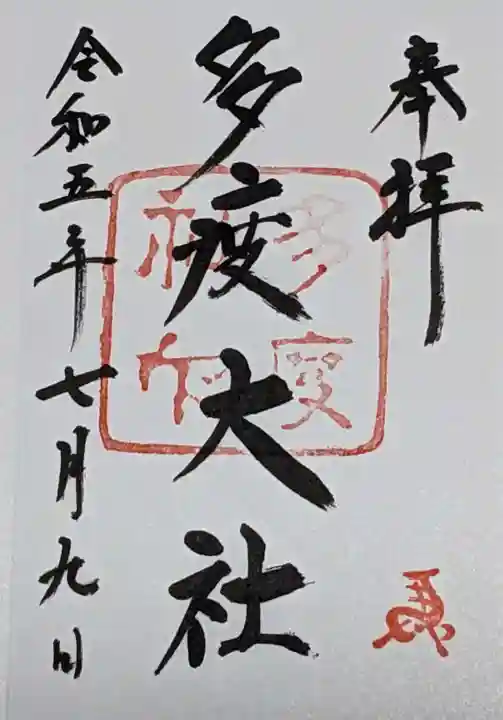 奉拝
多度大社
多度
神社
令和五年七月九日